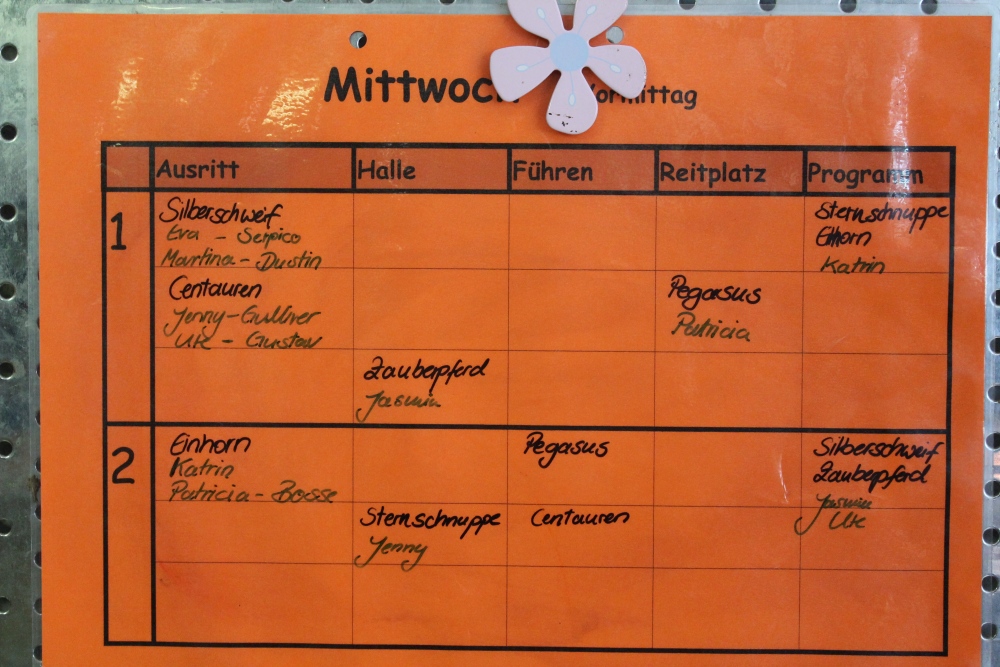 Mittwoch Vormittag
Ausritt Halle Führen Reitplatz Programm
1
Silberschweif
Eva - Serpico
Martina - Dustin
Sternschnuppe
Einhorn
Katrin
Centauren
Jenny - Gulliver
Ute - Gustav
Pegasus
Patricia
Zauberpferd
Jasmin
2
Einhorn
Katrin
Patricia - Bosse
Pegasus
Silberschweif
Zauberpferd
Jasmin
Ute
Sternschnuppe
Jenny
Centauren